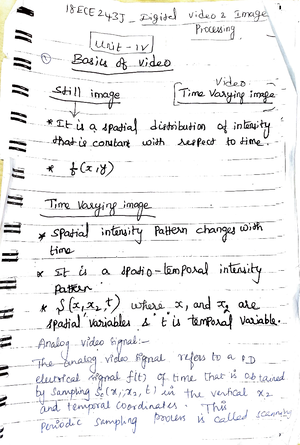 18ECE243J _ Digital Video & Image
Processing
Unit-IV
① Basics of video
Still image
Video
Time Varying image
* It is a spatial distribution of intensity
that is constant with respect to time.
* f(x,y)
Time Varying image
* Spatial intensity pattern changes with
time
* It is a spatio-temporal intensity
pattern
* S(x, x2, t) where x, and x2 are
spatial variables & 't' is temporal variable.
Analog video signal:-
The analog video signal refers to a 1.D
electrical signal f(t) of time that is obtained
by sampling Sc(x1,x2, t) in the vertical x2
and temporal coordinates. This
Periodic sampling process is called scanning